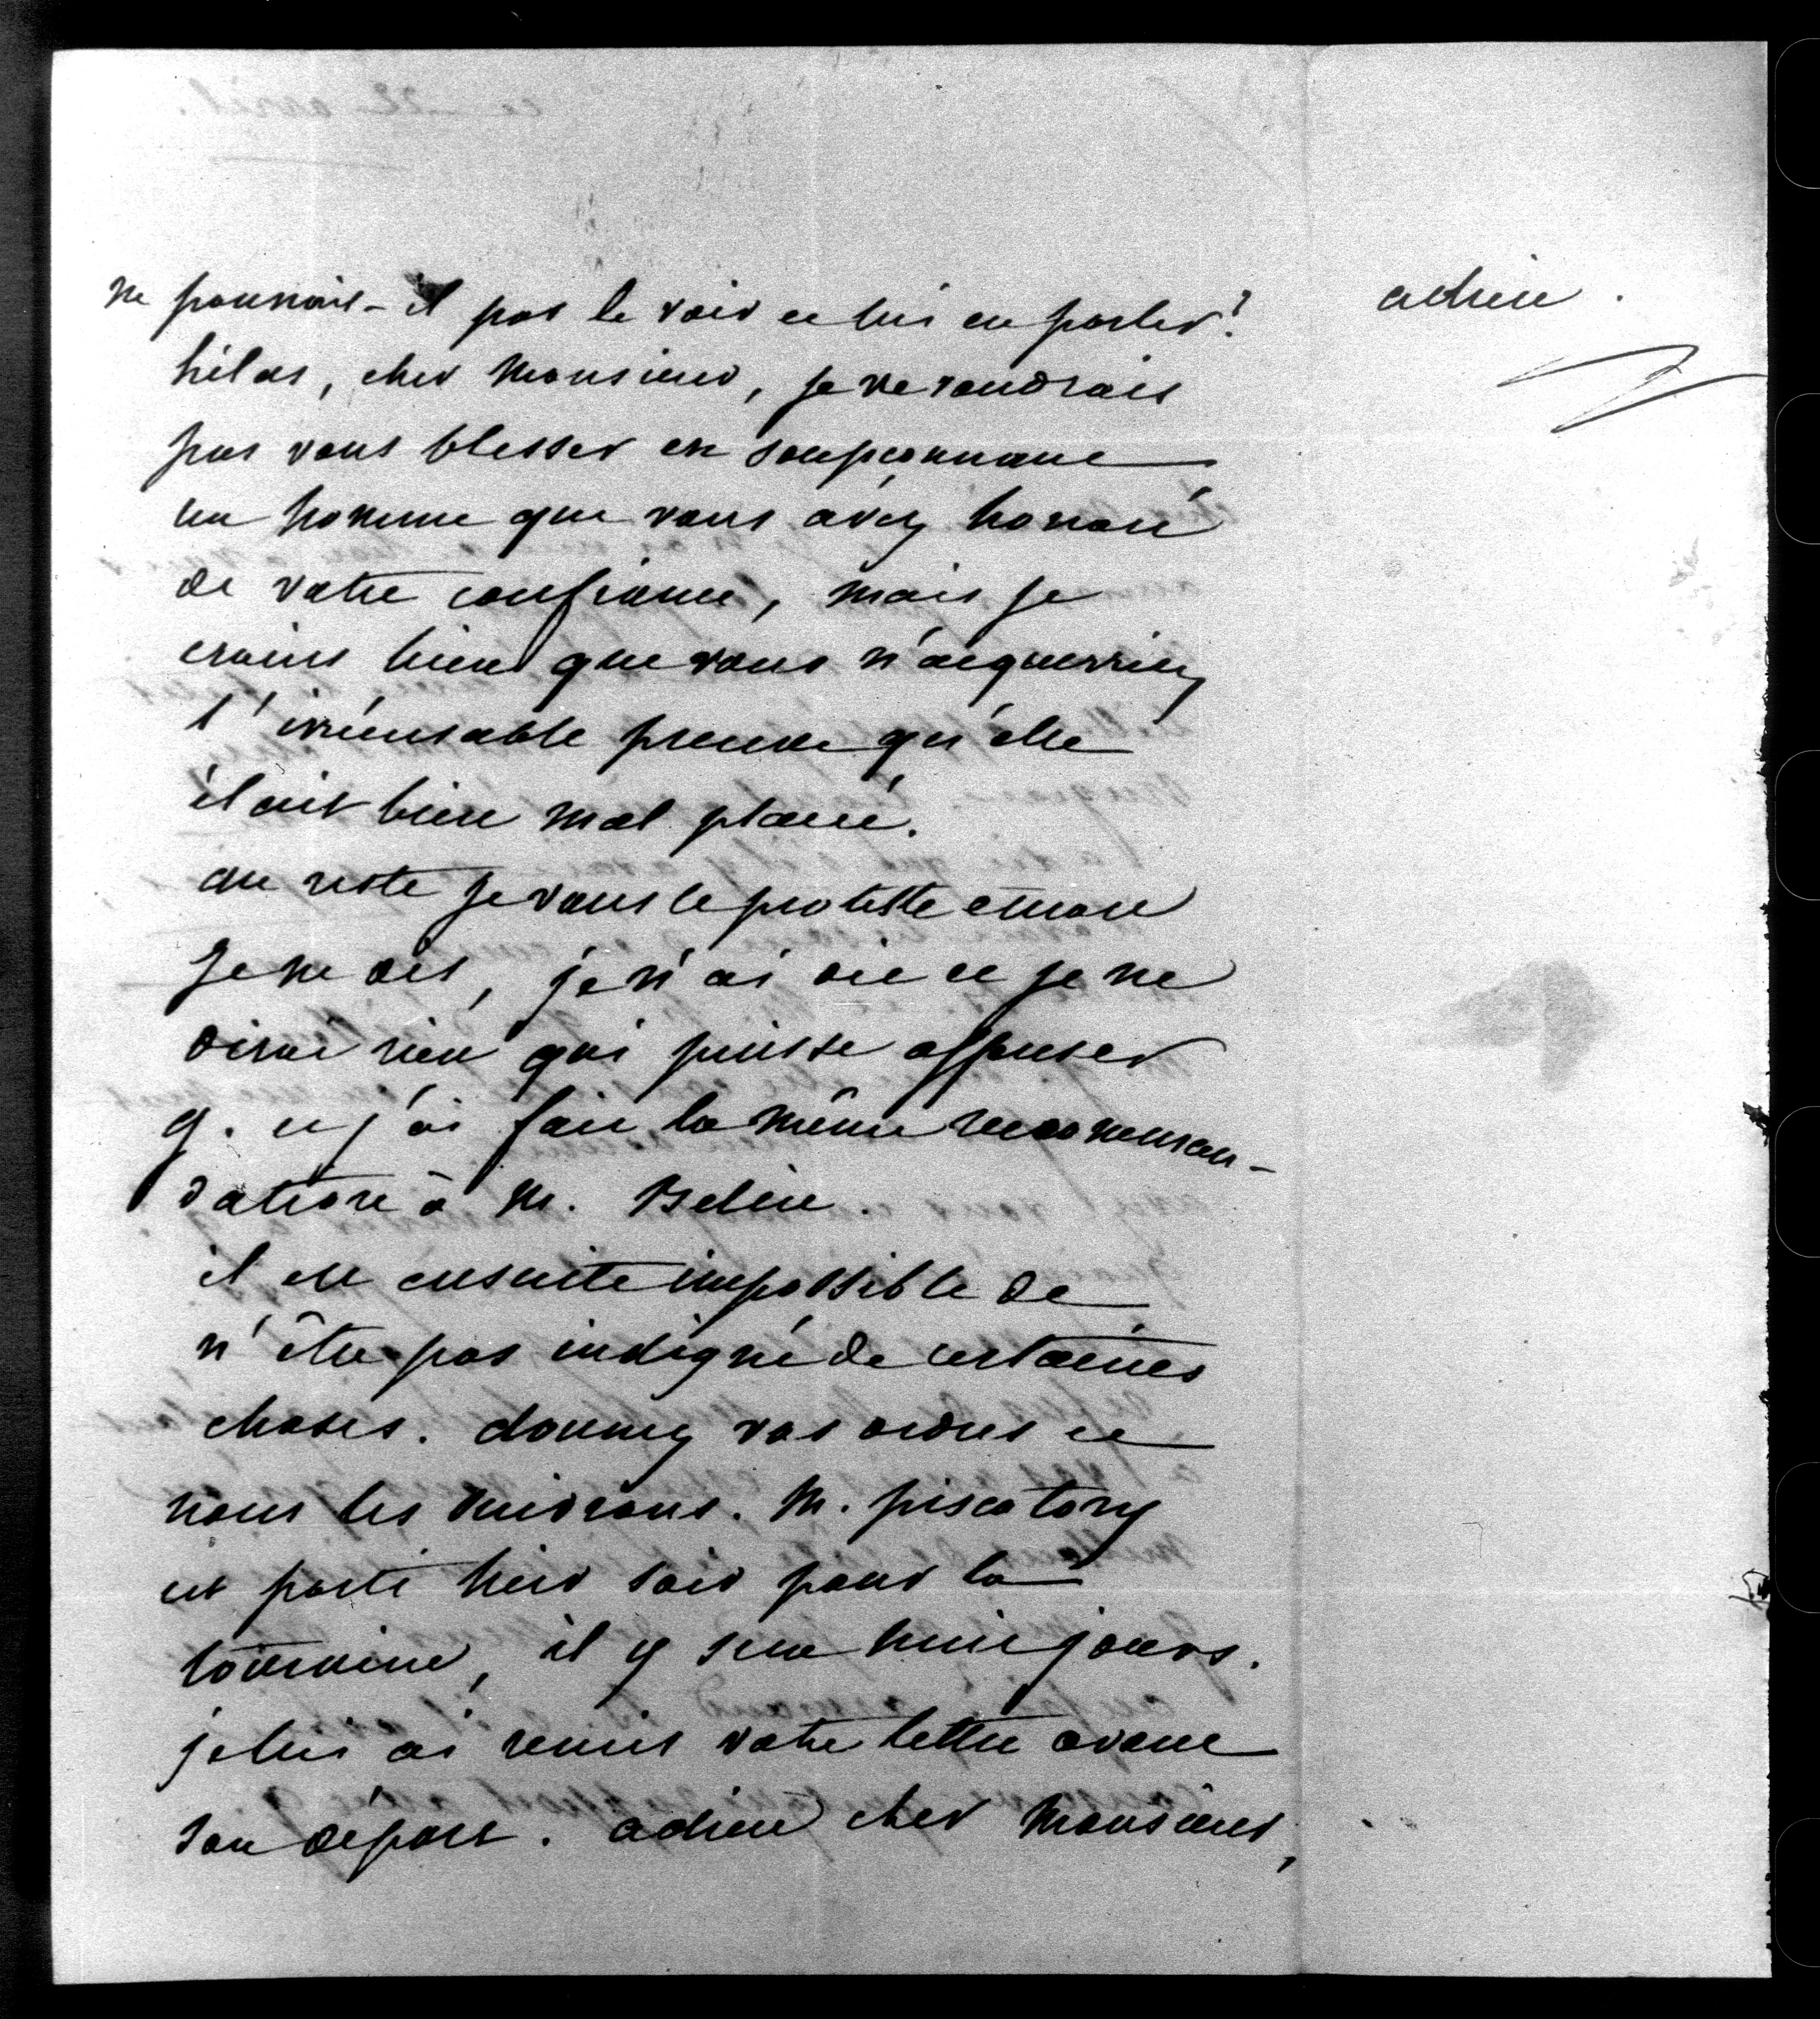 ne pourrait-il pas le voir et lui en parler?
hélas, cher Monsieur, je ne voudrais
pas vous blesser en soupçonnant
un homme que vous avez honoré
de votre confiance, mais je
crains bien que vous n'acquerriez
l'irrécusable preuve qu'elle
était bien mal placée.
au reste je vous le proteste encore
je ne dis, je n'ai dit et je ne
dirai rien qui puisse offenser
g. et j'ai fait la même recomman-
dation à M. Belin.
il est ensuite impossible de
n'être pas indigné de certaines
choses. donnez vos ordres et
nous les suivrons. M. piscatory
est parti hier soir pour la
touraine, il y sera huit jours.
je lui ai remis votre lettre avant
son départ. adieu cher Monsieur,
adieu.